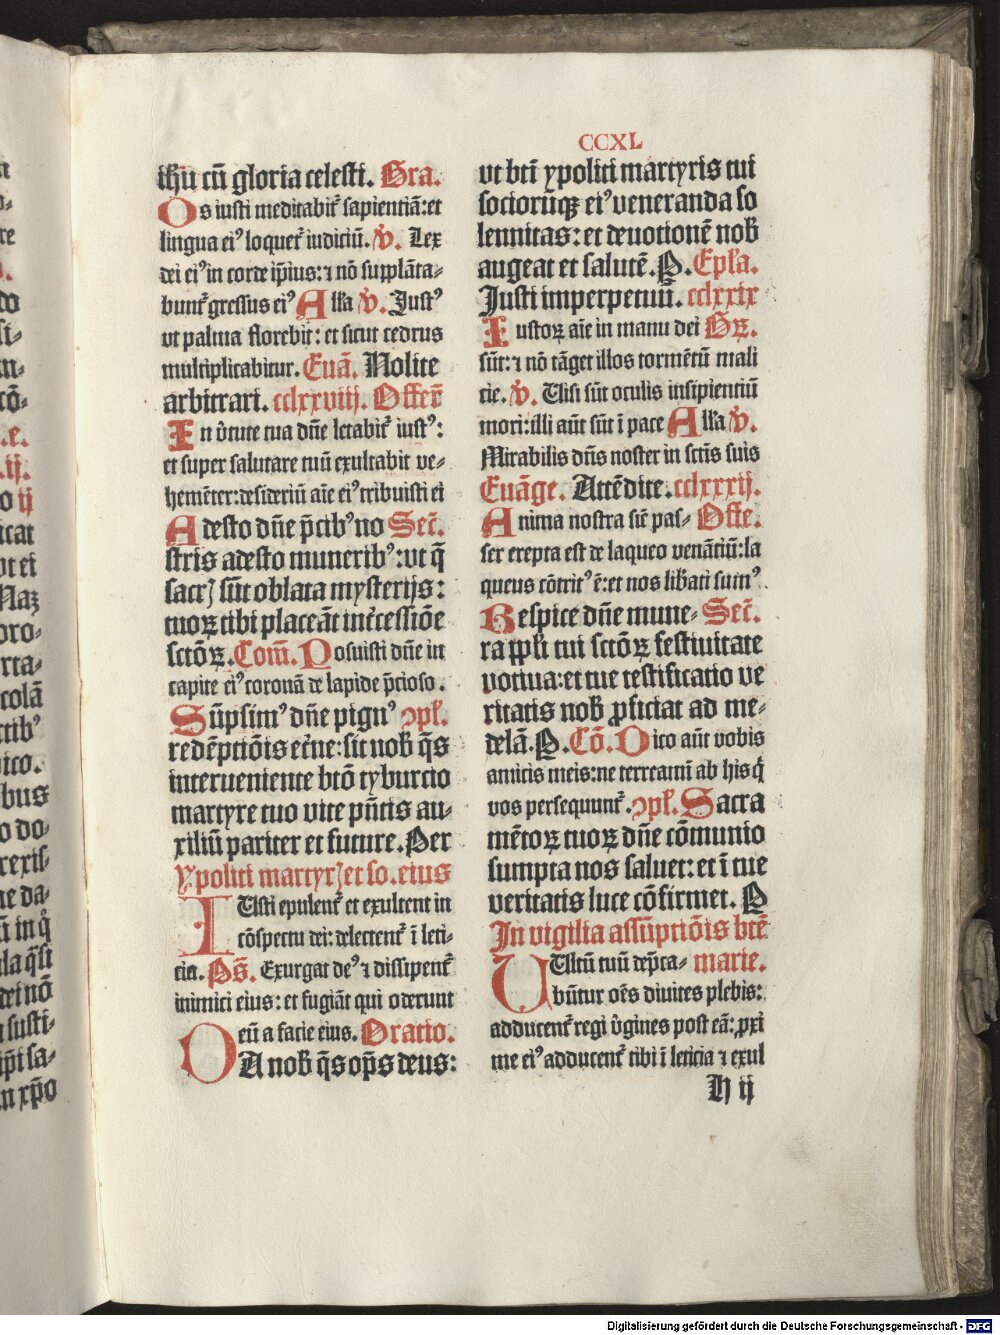 CCXL
ihū cū gloria celesti. Gra.
Os iusti meditabit᷑ sapientiā: et
lingua eiꝰ loquet᷑ iudiciū. V̇. Lex
dei eiꝰ in corde ip̄ius: ⁊ nō supplāta-
bunt᷑ gressus eiꝰ Alľa V̇. Justꝰ
vt palma florebit: et sicut cedrus
multiplicabitur. Euā. Nolite
arbitrari. cclxxviij. Offer̄
In v̇tute tua dn̄e letabit᷑ iustꝰ:
et super salutare tuū exultabit ve-
hemēter: desideriū aīe eiꝰ tribuisti ei
Adesto dn̄e p̄cibꝰ no Secr̄.
stris adesto muneribꝰ: vt q̄
sacrꝭ sūt oblata mysterijs:
tuoꝝ tibi placeāt int᷑cessiōe
sctōꝝ. Com̄. Posuisti dn̄e in
capite eiꝰ coronā de lapide p̄cioso.
Sūpsimꝰ dn̄e pignꝰ ꝯpľ.
redēptiōis et᷑ne: sit nob̄ q̄s
interueniente btō tyburcio
martyre tuo vite pn̄tis au-
xiliū pariter et future. Per
Ypoliti martyrꝭ et so. eius
IUsti epulent᷑ et exultent in
cōspectu dei: delectent᷑ ī leti-
cia. Ps̄. Exurgat deꝰ ⁊ dissipent᷑
inimici eius: et fugiāt qui oderunt
eū a facie eius. Oratio.
DA nob̄ q̄s op̄s deus:
vt bt̄i ypoliti martyris tui
sociorūqꝫ eiꝰ veneranda so
lennitas: et deuotionē nob̄
augeat et salutē. P. Epľa.
Justi imperpetuū. cclxxix
Iustoꝝ aīe in manu dei Gꝝ.
sūt: ⁊ nō tāget illos tormētū mali
cie. V̇. Uisi sūt oculis insipientiū
mori: illi aūt sūt ī pace Alľa V̇.
Mirabilis dn̄s noster in sctīs suis
Euāge. Attēdite. cclxxxij.
Anima nostra sīc pas- Offe.
ser erepta est de laqueo venātiū: la
queus cōtritꝰ ē: et nos lib̄ati sumꝰ
Respice dn̄e mune- Secr̄.
ra ppľi tui sctōꝝ festiuitate
votiua: et tue testificatio ve
ritatis nob̄ ꝓficiat ad me-
delā. P. Cō. Dico aūt vobis
amicis meis: ne terreamī ab his q̇
vos persequunt᷑. ꝯpľ. Sacra
mētoꝝ tuoꝝ dn̄e cōmunio
sumpta nos saluet: et ī tue
veritatis luce cōfirmet. P
In vigilia assūptiōis btē
UUltū tuū dep̄ca- marie.
būtur oēs diuites plebis:
adducent᷑ regi v̇gines post eā: ꝓxi
me eiꝰ adducent᷑ tibi ī leticia ⁊ exul
H ij
Digitalisierung gefördert durch die Deutsche Forschungsgemeinschaft - DFG